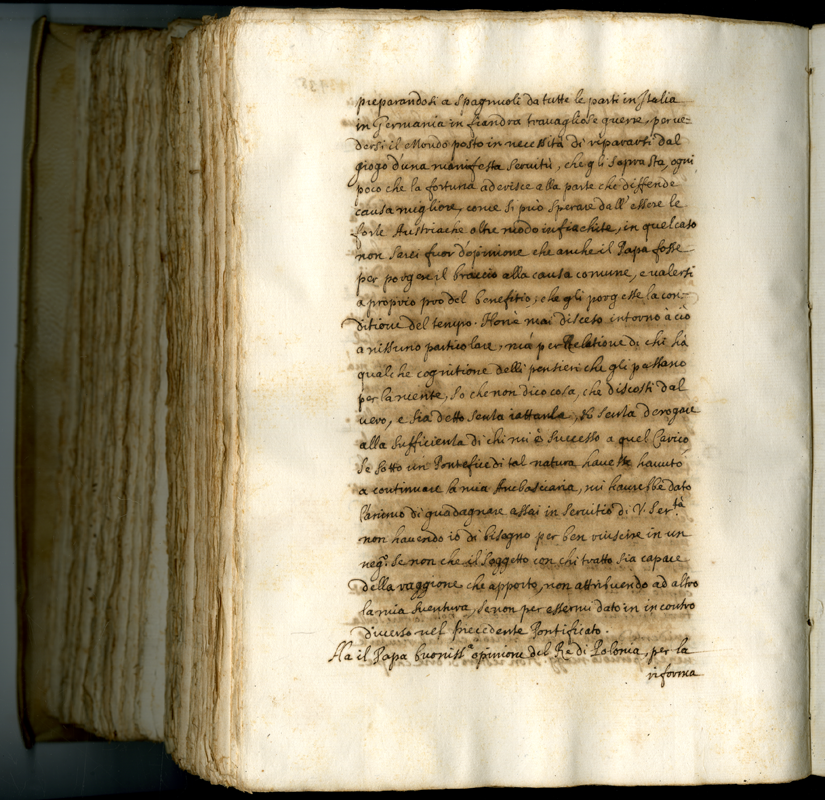 preparandosi a Spagnuoli da tutte le parti in Italia
in Germania in Fiandra travagliose guerre, per ve=
dersi il Mondo posto in necessità di ripararsi dal
giogo d'una manifesta servitù, che gli soprasta, ogni
poco che la fortuna aderisce alla parte che diffende
causa migliore, come si può sperare dall'essere le
forze Austriache oltre modo infiachite, in quel caso
non sarei fuor d'opinione che anche il Papa fosse
per porgere il braccio alla causa comune, e valersi
a proprio prò del benefitio, che gli porgesse la con=
ditione del tempo. Non è mai disceso intorno à ciò
a nissuno particolare, mà per Relatione di chi hà
qualche cognitione delli pensieri che gli passano
per la mente, So che non dico cosa, che discosti dal
vero, e sia detto senza iattanza, e senza derogare
alla sufficienza di chi mi è successo a quel Carico
se sotto un Pontefice di tal natura havesse havuto
a continuare la mia Ambasciaria, mi haurebbe dato
l'animo di guadagnare assai in servitio di V. Ser.tà
non havendo io di bisogno per ben riuscire in un
neg.o se non che il soggetto con chi tratto sia capace
della raggione che apporto, non attribuendo ad altro
la mia sventura, se non per essermi dato in incontro
diverso nel precedente Pontificato.
Ha il Papa buoniss.a opinione del Re di Polonia, per la
riforma